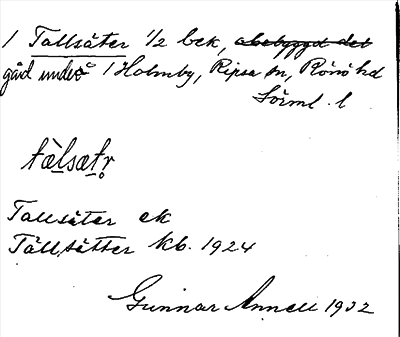 1 Tallsäter 1/2 bek, obebyggd det
gård under 1 Holmby, Ripsa sn, Rönö hd
Sörml. l
tälsætr̥
Tallsäter ek
Tällsätter kb. 1924
Gunnar Annell 1932